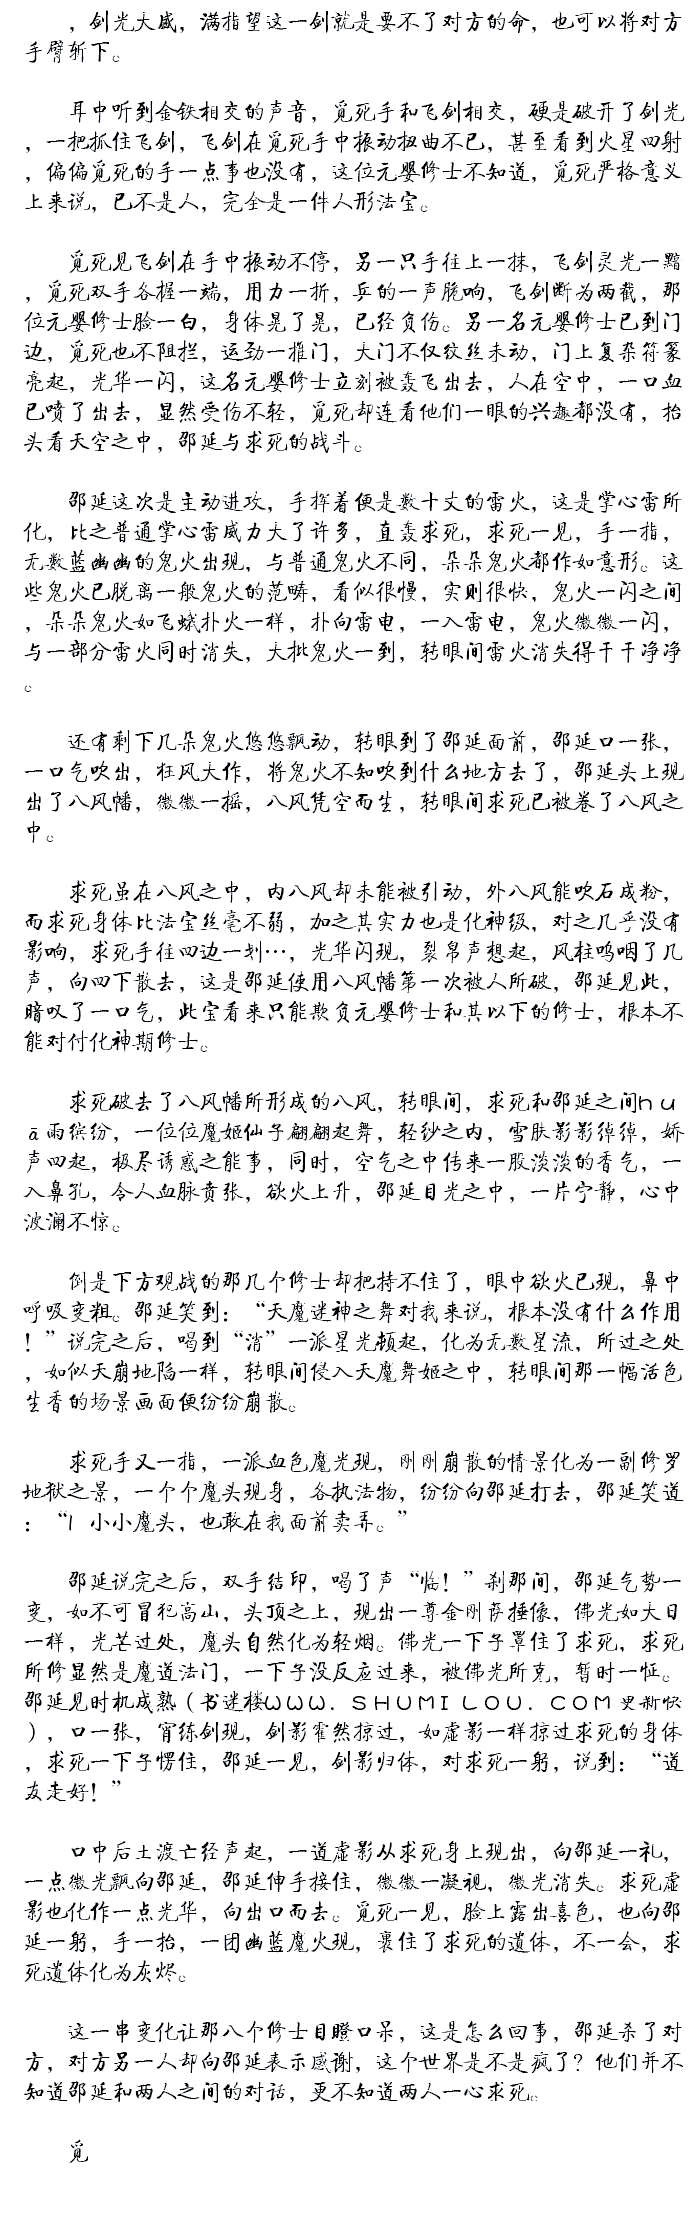 ，剑光大盛，满指望这一剑就是要不了对方的命，也可以将对方
手臂斩下。
耳中听到金铁相交的声音，觅死手和飞剑相交，硬是破开了剑光
，一把抓住飞剑，飞剑在觅死手中振动扭曲不已，甚至看到火星四射
，偏偏觅死的手一点事也没有，这位元婴修士不知道，觅死严格意义
上来说，已不是人，完全是一件人形法宝。
觅死见飞剑在手中振动不停，另一只手往上一抹，飞剑灵光一黯
，觅死双手各握一端，用力一折，乒的一声脆响，飞剑断为两截，那
位元婴修士脸一白，身体晃了晃，已经负伤。另一名元婴修士已到门
边，觅死也不阻拦，运劲一推门，大门不仅纹丝未动，门上复杂符篆
亮起，光华一闪，这名元婴修士立刻被轰飞出去，人在空中，一口血
已喷了出去，显然受伤不轻，觅死却连看他们一眼的兴趣都没有，抬
头看天空之中，邵延与求死的战斗。
邵延这次是主动进攻，手挥着便是数十丈的雷火，这是掌心雷所
化，比之普通掌心雷威力大了许多，直轰求死，求死一见，手一指，
无数蓝幽幽的鬼火出现，与普通鬼火不同，朵朵鬼火都作如意形。这
些鬼火已脱离一般鬼火的范畴，看似很慢，实则很快，鬼火一闪之间
，朵朵鬼火如飞蛾扑火一样，扑向雷电，一入雷电，鬼火微微一闪，
与一部分雷火同时消失，大批鬼火一到，转眼间雷火消失得干干净净
。
还有剩下几朵鬼火悠悠飘动，转眼到了邵延面前，邵延口一张，
一口气吹出，狂风大作，将鬼火不知吹到什么地方去了，邵延头上现
出了八风幡，微微一摇，八风凭空而生，转眼间求死已被卷了八风之
中。
求死虽在八风之中，内八风却未能被引动，外八风能吹石成粉，
而求死身体比法宝丝毫不弱，加之其实力也是化神级，对之几乎没有
影响，求死手往四边一划…，光华闪现，裂帛声想起，风柱呜咽了几
声，向四下散去，这是邵延使用八风幡第一次被人所破，邵延见此，
暗叹了一口气，此宝看来只能欺负元婴修士和其以下的修士，根本不
能对付化神期修士。
求死破去了八风幡所形成的八风，转眼间，求死和邵延之间hu
ā雨缤纷，一位位魔姬仙子翩翩起舞，轻纱之内，雪肤影影绰绰，娇
声四起，极尽诱惑之能事，同时，空气之中传来一股淡淡的香气，一
入鼻孔，令人血脉贲张，欲火上升，邵延目光之中，一片宁静，心中
波澜不惊。
倒是下方观战的那几个修士却把持不住了，眼中欲火已现，鼻中
呼吸变粗。邵延笑到：“天魔迷神之舞对我来说，根本没有什么作用
！”说完之后，喝到“消”一派星光顿起，化为无数星流，所过之处
，如似天崩地陷一样，转眼间侵入天魔舞姬之中，转眼间那一幅活色
生香的场景画面便纷纷崩散。
求死手又一指，一派血色魔光现，刚刚崩散的情景化为一副修罗
地狱之景，一个个魔头现身，各执法物，纷纷向邵延打去，邵延笑道
：“l 小小魔头，也敢在我面前卖弄。”
邵延说完之后，双手结印，喝了声“临！”刹那间，邵延气势一
变，如不可冒犯高山，头顶之上，现出一尊金刚萨捶像，佛光如大日
一样，光芒过处，魔头自然化为轻烟。佛光一下子罩住了求死，求死
所修显然是魔道法门，一下子没反应过来，被佛光所克，暂时一怔。
邵延见时机成熟（书迷楼WWW．ＳＨＵＭＩＬＯＵ．ＣＯＭ更新快
），口一张，宵练剑现，剑影霍然掠过，如虚影一样掠过求死的身体
，求死一下子愣住，邵延一见，剑影归体，对求死一躬，说到：“道
友走好！”
口中后土渡亡经声起，一道虚影从求死身上现出，向邵延一礼，
一点微光飘向邵延，邵延伸手接住，微微一凝视，微光消失。求死虚
影也化作一点光华，向出口而去。觅死一见，脸上露出喜色，也向邵
延一躬，手一抬，一团幽蓝魔火现，裹住了求死的遗体，不一会，求
死遗体化为灰烬。
这一串变化让那八个修士目瞪口呆，这是怎么回事，邵延杀了对
方，对方另一人却向邵延表示感谢，这个世界是不是疯了？他们并不
知道邵延和两人之间的对话，更不知道两人一心求死。
觅